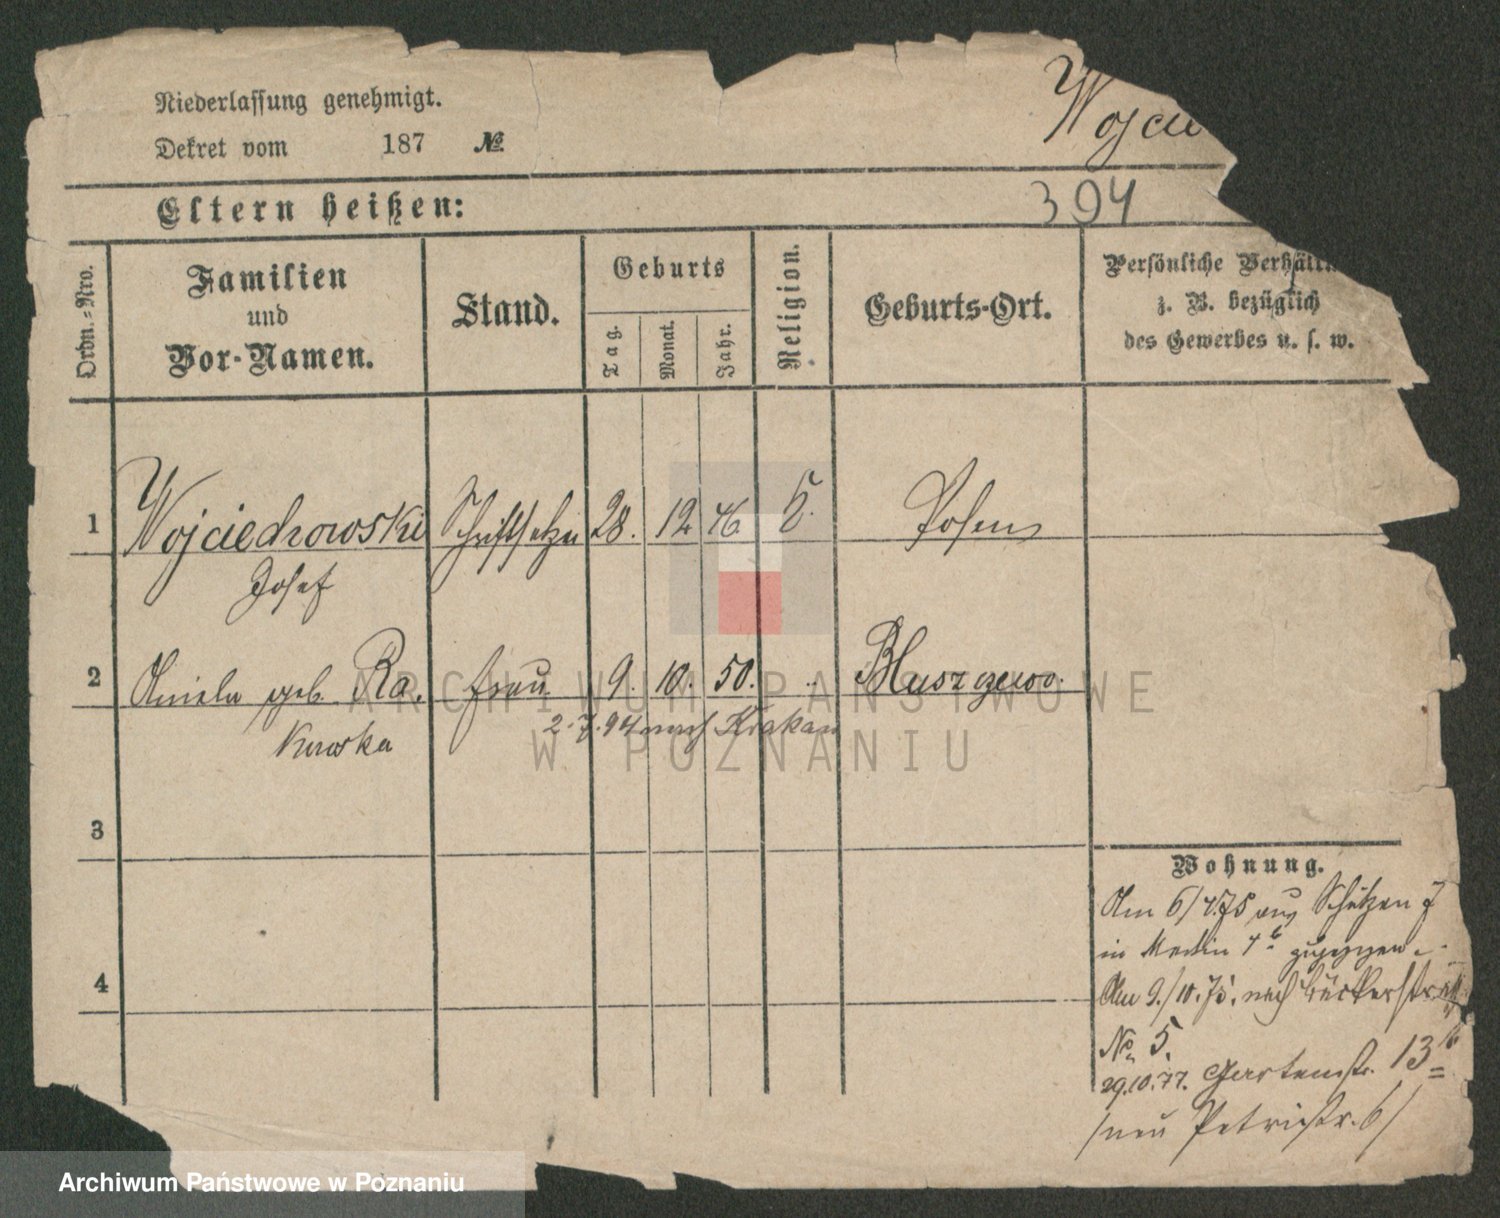 Niederlassung genehmigt.
Dekret vom 187 №
Wojcie
Eltern heißen:
394
Ordn.-Nro.
Familien und Vor-Namen.
Stand.
Geburts
Tag.
Monat.
Jahr.
Religion.
Geburts-Ort.
Persönliche Verhält
z. B. bezüglich
des Gewerbes u. s. w.
1 Wojciechowski Schriftsetzer 28. 12 46 Posen
Josef
2 Aniela geb. Ra, Frau 9. 10. 50.
kowska
2.7.94 nach Krakau
3
4
Wohnung.
Am 6/4.75 aus Schützen 7
in Martin 4 b zugezogen
Am 9./10.75. nach Bäckerstr
No 5.
29.10.77. Gartenstr. 13 b
/neu Petristr. 6/
ARCHIWUM PAŃSTWOWE
W POZNANIU
Archiwum Państwowe w Poznaniu